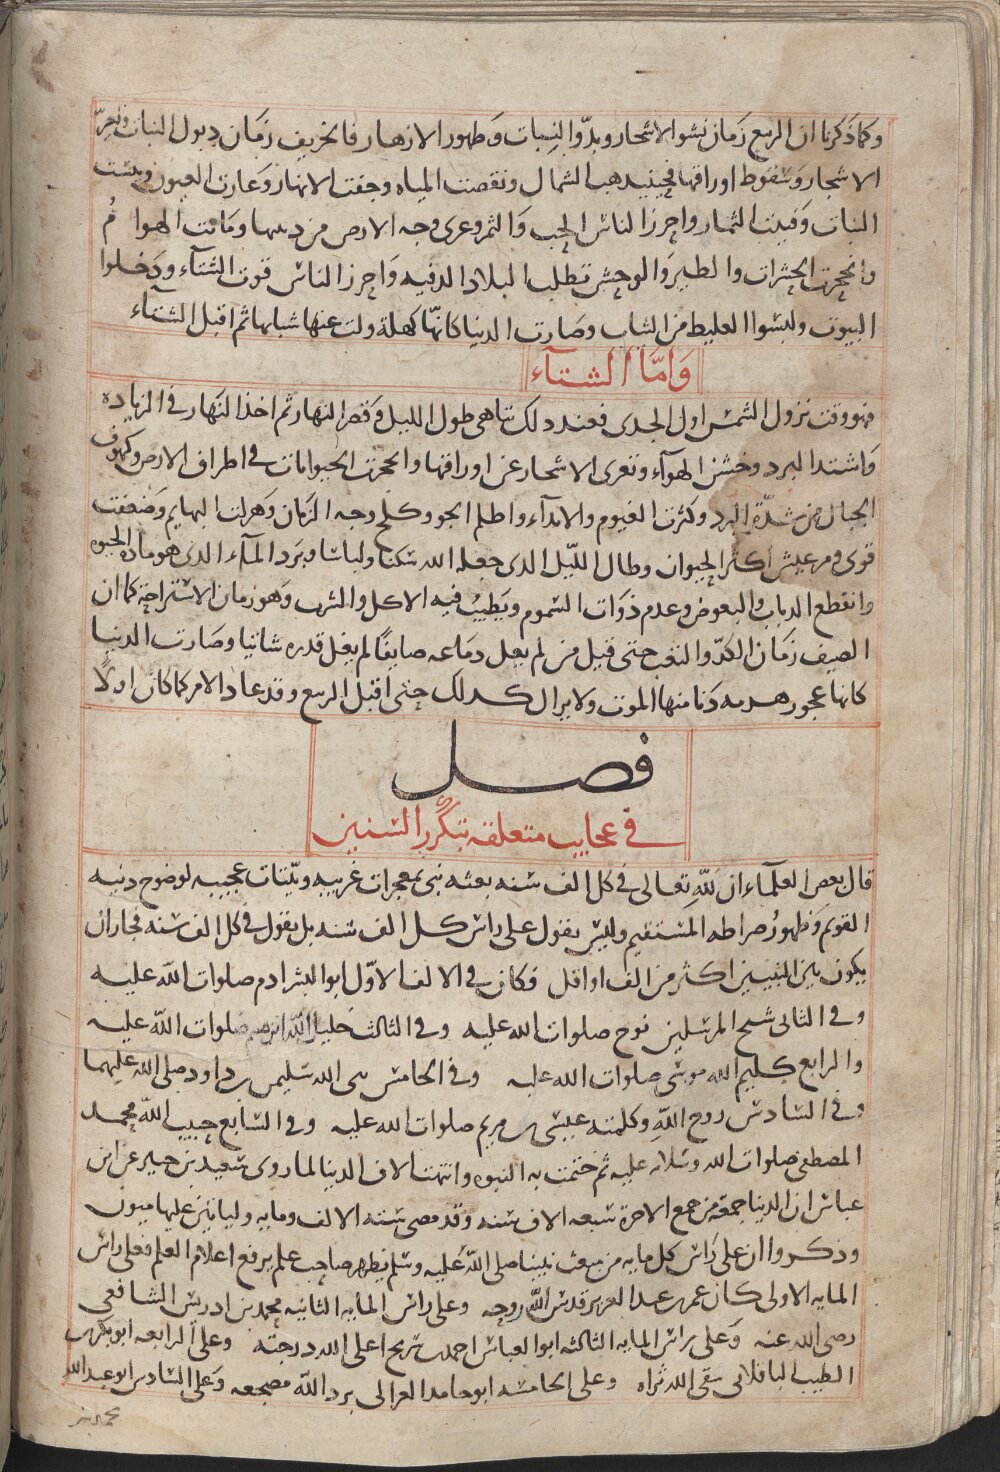 وكما ذكرنا ان الربيع زمان نشو الاشجار وبدّو النبات وظهور الازهار فالخريف زمان ذبول النبات وتعرّي
الاشجار وسقوط اوراقها فحينئذ هب الشمال ونقصت المياه وجفت الانهار وغارت العيون ويبست
النبات وفنيت الثمار واحرز الناس الحب والثمر وعرى وجه الارض من زينتها وماتت الهوام
وانحجرت الحشرات والطير والوحش تطلب البلاد الدفيه واحرز الناس قوت الشتآء ودخلوا
البيوت ولبسوا الغليظ من الثياب وصارت الدنيا كانها كهلة ولت عنها شبابها ثم اقبل الشتاء
وَامَّا الشتآء
فهو وقت نزول الشمس اول الجدى فعند ذلك تناهى طول الليل وقصر النهار ثم اخذ النهار فى الزياده
واشتد البرد وخشن الهوآء وتعرى الاشجار عن اوراقها وانحجرت الحيوانات فى اطراف الارض وكهوف
الجبال من شدّة البرد وكثرت الغيوم والاندآء واظلم الجو وكلح وجه الزمان وهزلت البهايم وضعفت
قوى ومر عيش اكثر الحيوان وطال الليل الذى جعله الله سكنا ولباسا وبرد المآء الذى هو مادة الحيوة
وانقطع الذباب والبعوض وعدم ذوات السموم ويطيب فيه الاكل والشرب وهو زمان الاستراحة كما ان
الصيف زمان الكدّ والتعب حتى قيل من لم يغل دماغه صايفًا لم يغل قدره شاتيا وصارت الدنيا
كانها عجوز هرمه دنا منها الموت ولا يزال كذلك حتى اقبل الربيع وقد عاد الامر كما كان اولًا
فصل
فى عجايب متعلقه بتكرّر السنين
قال بعض العلمآء ان لله تعالى فى كل الف سنه بعثه نبى بمعجزات غريبه وبيّنات عجيبه لوضوح دينه
القويم وظهور صراطه المستقيم وليس يقول على راس كل الف سنه بل يقول فى كل الف سنه فجاز ان
يكون بين النبيين اكثر من الف او اقل فكان فى الالف الاوّل ابو البشر ادم صلوات الله عليه
وفى الثانى شيخ المرسلين نوح صلوات الله عليه وفى الثالث خليل الله ابرهيم صلوات الله عليه
والرابع كليم الله موسى صلوات الله عليه وفى الخامس نبى الله سليمن بن داود صلى الله عليهما
وفى السادس روح الله وكلمته عيسى بن مريم صلوات الله عليه وفى السابع حبيب الله محمد
المصطفى صلوات الله وسلامه عليه ثم ختمت به النبوه وانتهت الاف الدنيا لما روى سعيد بن جبير عن ابن
عباس ان الدنيا جمعة من جمع الاخرة سبعه الاف سنه وقد مضى سته الالف ومايه وليا تين عليها ميون
وذكروا ان على راس كل مايه من مبعث نبينا صلى الله عليه وسلم يظهر صاحب علم يرفع اعلام العلم فعلى راس
المايه الاولى كان عمر بن عبد العزيز قدس الله روحه وعلى راس المايه الثانيه محمد بن ادريس الشافعي
رضى الله عنه وعلى راس المايه الثالثه ابو العباس احمد بن سريج اعلى الله درجته وعلى الرابعه ابو بكر بن
الطيب الباقلانى سقى الله ثراه وعلى الخامسه ابو حامد الغزالى برد الله مضجعه وعلى السادس ابو عبد الله
محمد بن